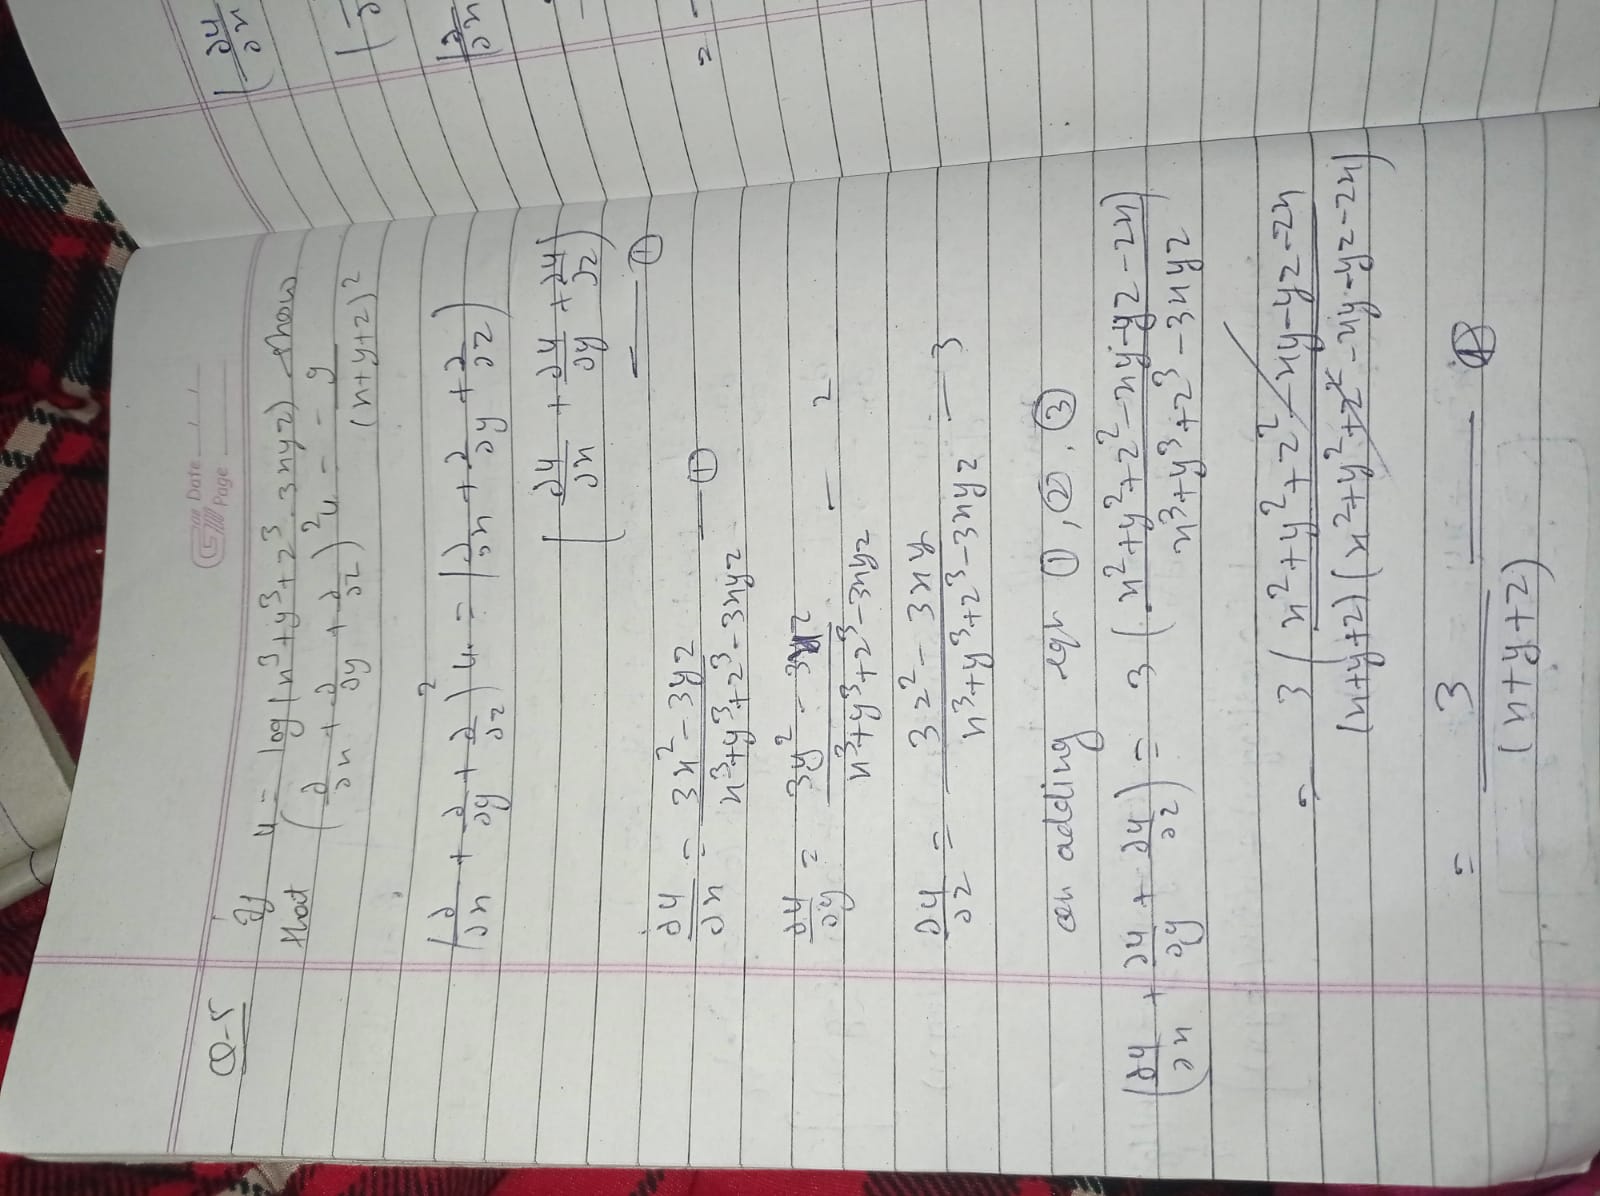 Date / /
Page
Q-5 If u = log (x³+y³+z³-3xyz) show
that (∂/∂x + ∂/∂y + ∂/∂z)² u = - 9/(x+y+z)²
(∂/∂x + ∂/∂y + ∂/∂z)² u = (∂/∂x + ∂/∂y + ∂/∂z)
(∂u/∂x + ∂u/∂y + ∂u/∂z)
— ①
∂u/∂x = 3x² - 3yz / x³+y³+z³-3xyz — ①
∂u/∂y = 3y² - 3 z / x³+y³+z³-3xyz — 2
∂u/∂z = 3z² - 3xy / x³+y³+z³-3xyz — 3
on adding eqn ①, ②, ③
(∂u/∂x + ∂u/∂y + ∂u/∂z) = 3 (x²+y²+z²-xy-yz-zx) / x³+y³+z³-3xyz
= 3 (x²+y²+z²-xy-yz-zx / (x+y+z)(x²+y²+z²-xy-yz-zx)
= 3 / (x+y+z) —
(∂u/∂x
=